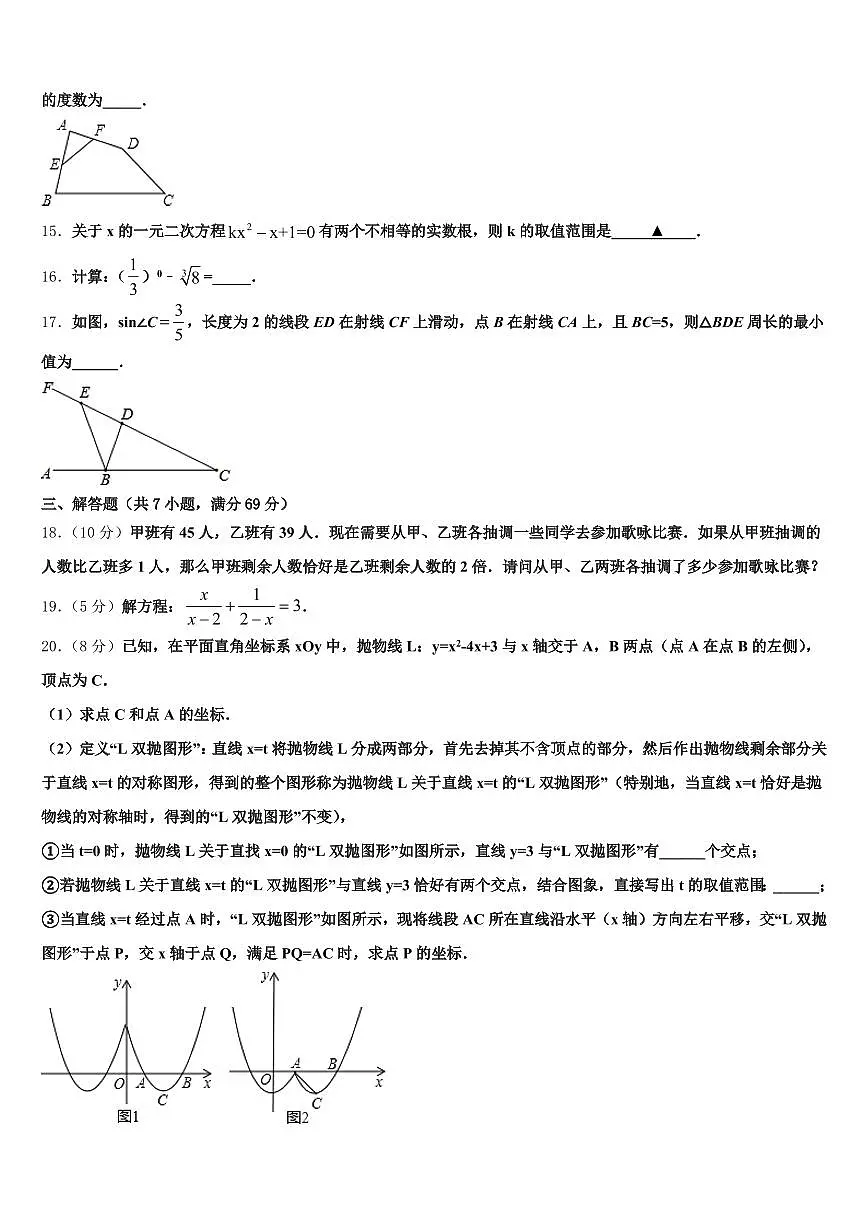 的度数为_____．
A
F
D
E
B
C
15．关于 x 的一元二次方程 kx² − x+1=0 有两个不相等的实数根，则 k 的取值范围是 ▲ ．
16．计算：(1/3)⁰﹣∛8=_____．
17．如图，sin∠C=3/5，长度为 2 的线段 ED 在射线 CF 上滑动，点 B 在射线 CA 上，且 BC=5，则△BDE 周长的最小
值为______．
F
E
D
A
B
C
三、解答题（共 7 小题，满分 69 分）
18．（10 分）甲班有 45 人，乙班有 39 人．现在需要从甲、乙班各抽调一些同学去参加歌咏比赛．如果从甲班抽调的
人数比乙班多 1 人，那么甲班剩余人数恰好是乙班剩余人数的 2 倍．请问从甲、乙两班各抽调了多少参加歌咏比赛？
19．（5 分）解方程：x/(x−2)+1/(2−x)=3．
20．（8 分）已知，在平面直角坐标系 xOy 中，抛物线 L：y=x²-4x+3 与 x 轴交于 A，B 两点（点 A 在点 B 的左侧），
顶点为 C．
（1）求点 C 和点 A 的坐标．
（2）定义“L 双抛图形”：直线 x=t 将抛物线 L 分成两部分，首先去掉其不含顶点的部分，然后作出抛物线剩余部分关
于直线 x=t 的对称图形，得到的整个图形称为抛物线 L 关于直线 x=t 的“L 双抛图形”（特别地，当直线 x=t 恰好是抛
物线的对称轴时，得到的“L 双抛图形”不变），
①当 t=0 时，抛物线 L 关于直找 x=0 的“L 双抛图形”如图所示，直线 y=3 与“L 双抛图形”有______个交点；
②若抛物线 L 关于直线 x=t 的“L 双抛图形”与直线 y=3 恰好有两个交点，结合图象，直接写出 t 的取值范围：______；
③当直线 x=t 经过点 A 时，“L 双抛图形”如图所示，现将线段 AC 所在直线沿水平（x 轴）方向左右平移，交“L 双抛
图形”于点 P，交 x 轴于点 Q，满足 PQ=AC 时，求点 P 的坐标．
y
O
A
B
x
C
图1
y
A
B
O
x
C
图2